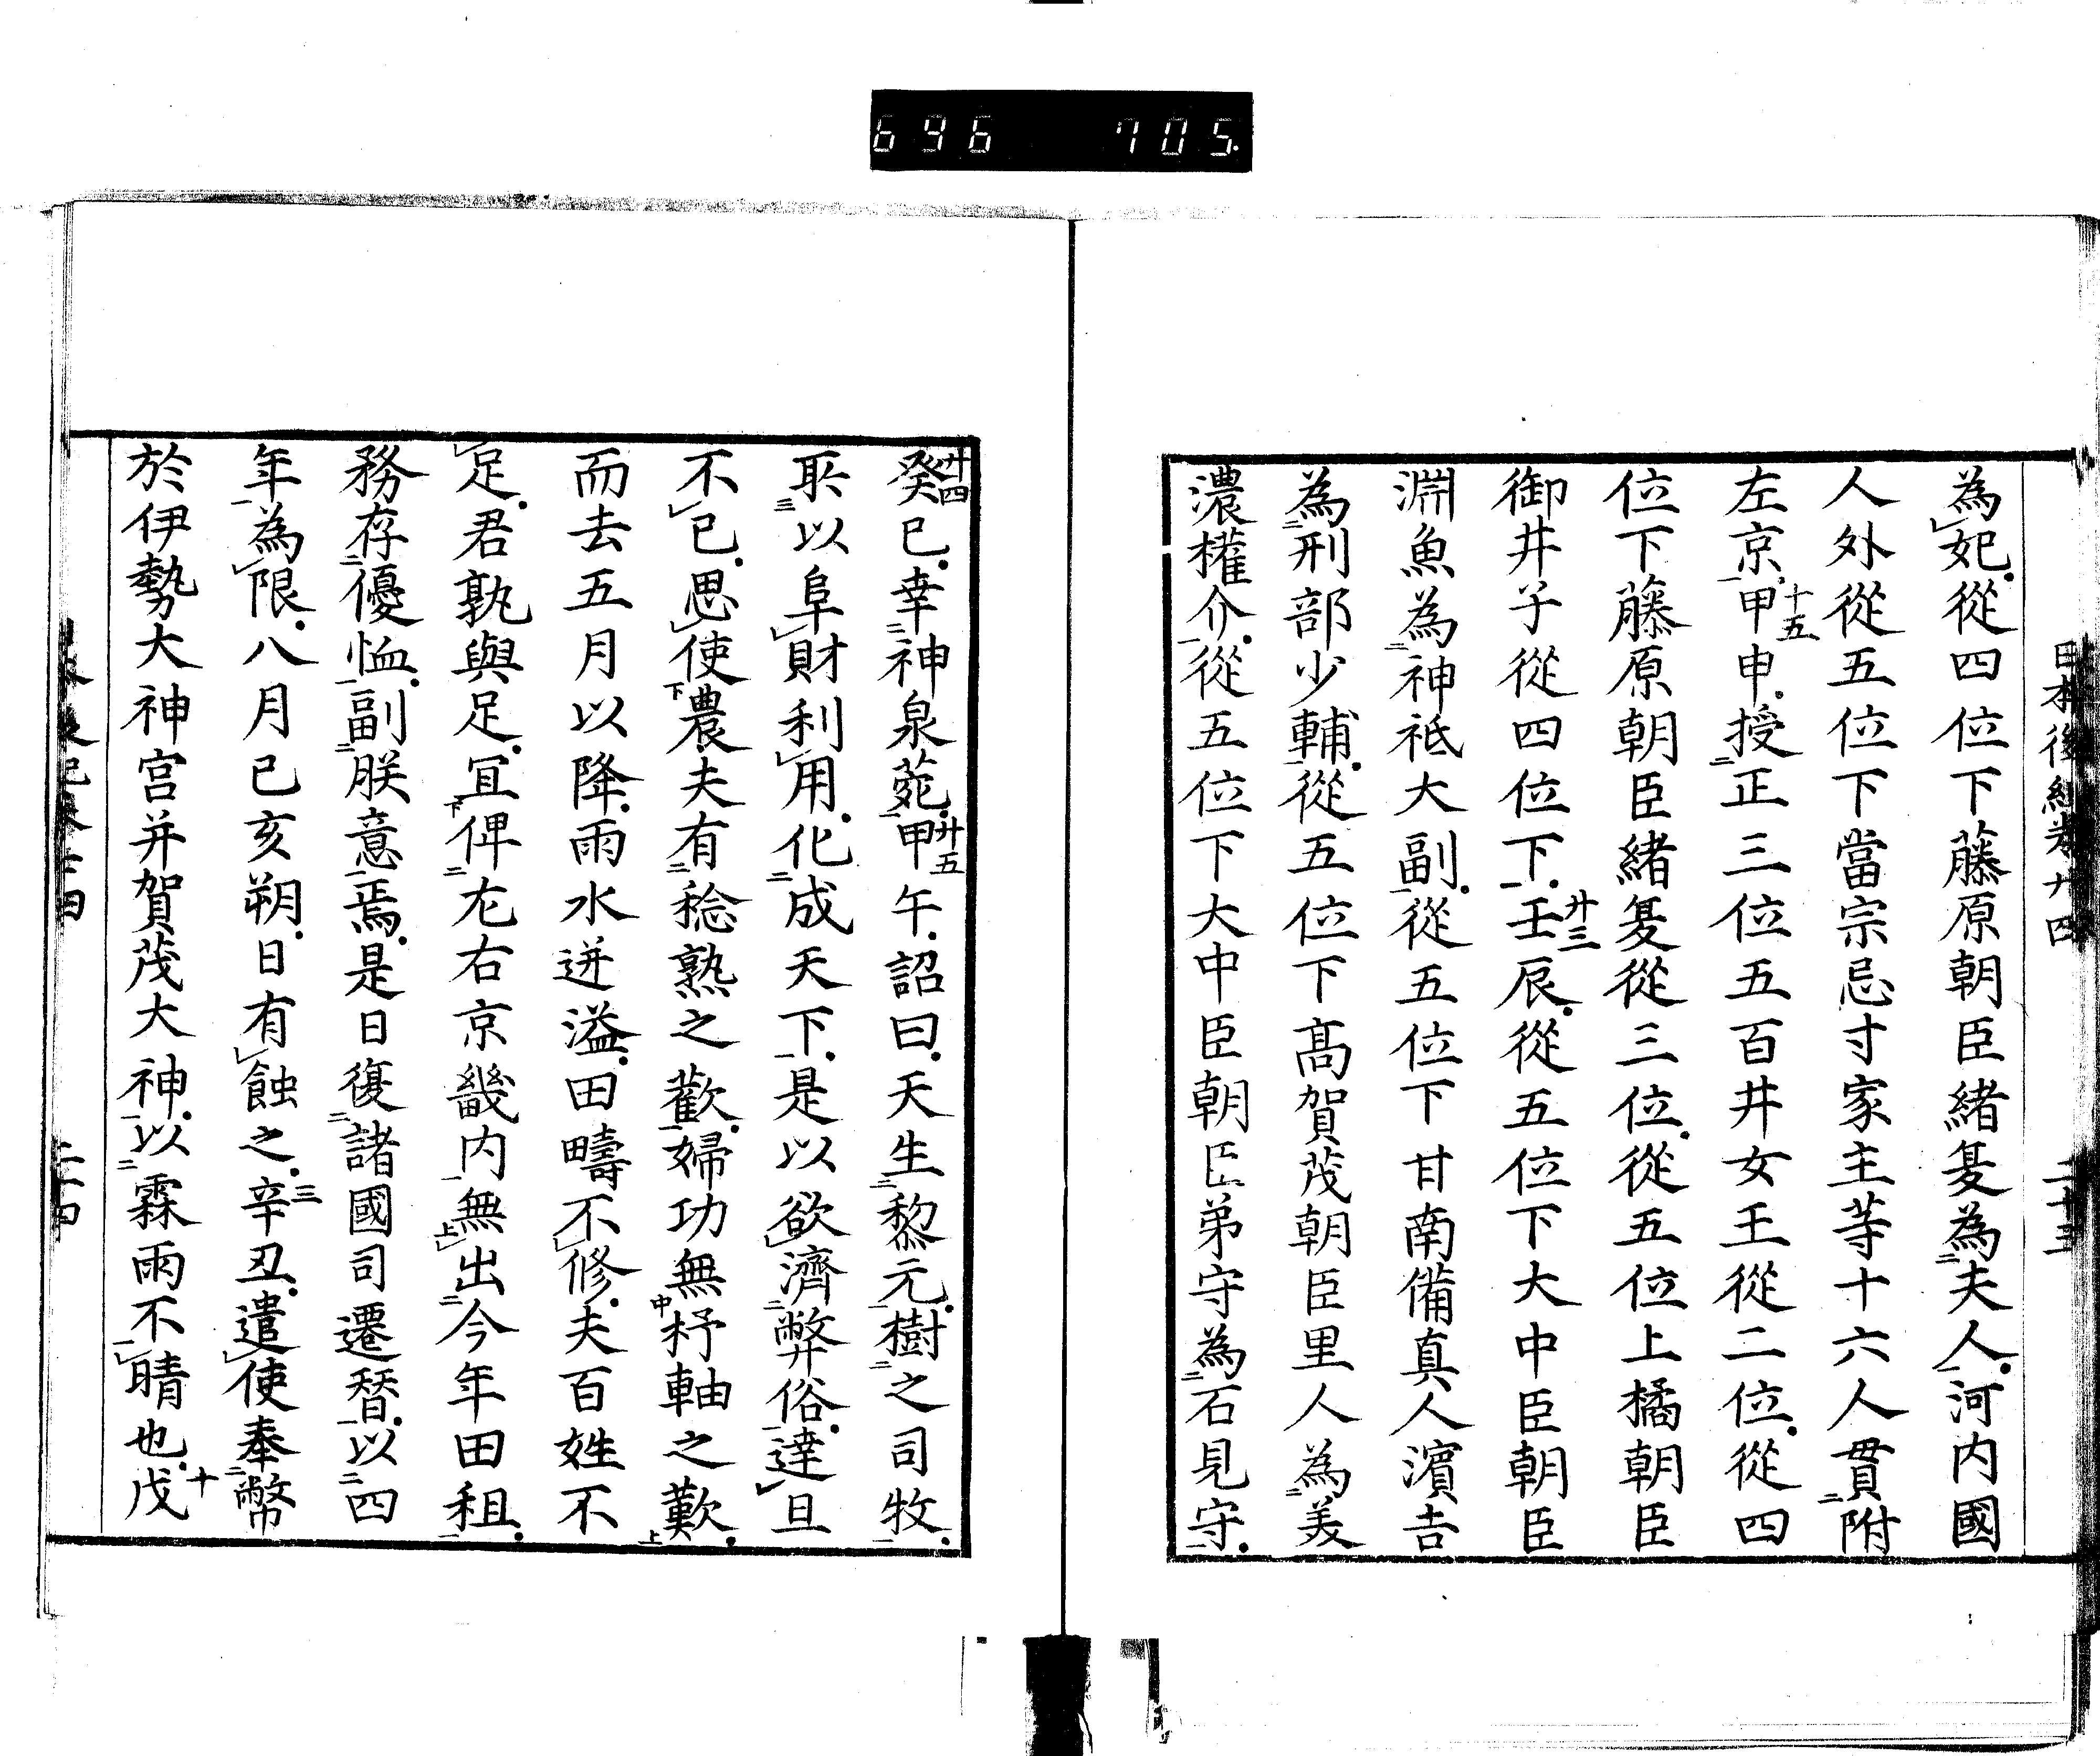 696 705.
日本後紀卷廿四
為妃從四位下藤原朝臣緖夏為夫人河内國
人外從五位下當宗忌寸家主等十六人貫附
左京甲申十五授正三位五百井女王從二位從四
位下藤原朝臣緖夏從三位從五位上橘朝臣
御井子從四位下壬辰廿三從五位下大中臣朝臣
淵魚為神祇大副從五位下甘南備真人濱吉
為刑部少輔從五位下髙賀茂朝臣里人為美
濃權介從五位下大中臣朝臣弟守為石見守
癸巳廿四幸神泉苑甲午廿五詔曰天生黎元樹之司牧
𫆀以阜財利用化成天下是以欲濟弊俗達旦
不已思使農夫有稔熟之歡婦功無杼軸之歎
而去五月以降雨水迸溢田疇不修夫百姓不
足君孰與足冝俾左右京畿内無出今年田租
務存優恤副朕意焉是日復諸國司遷替以四
年為限八月己亥朔日有蝕之辛丑三遣使奉幣
於伊勢大神宫并賀茂大神以霖雨不晴也戊十